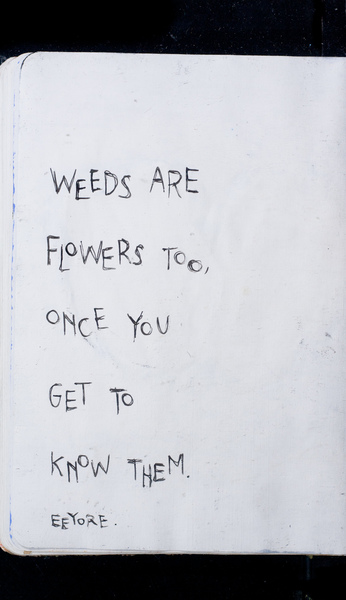 WEEDS ARE
FLOWERS TOO,
ONCE YOU
GET TO
KNOW THEM.
EEYORE.